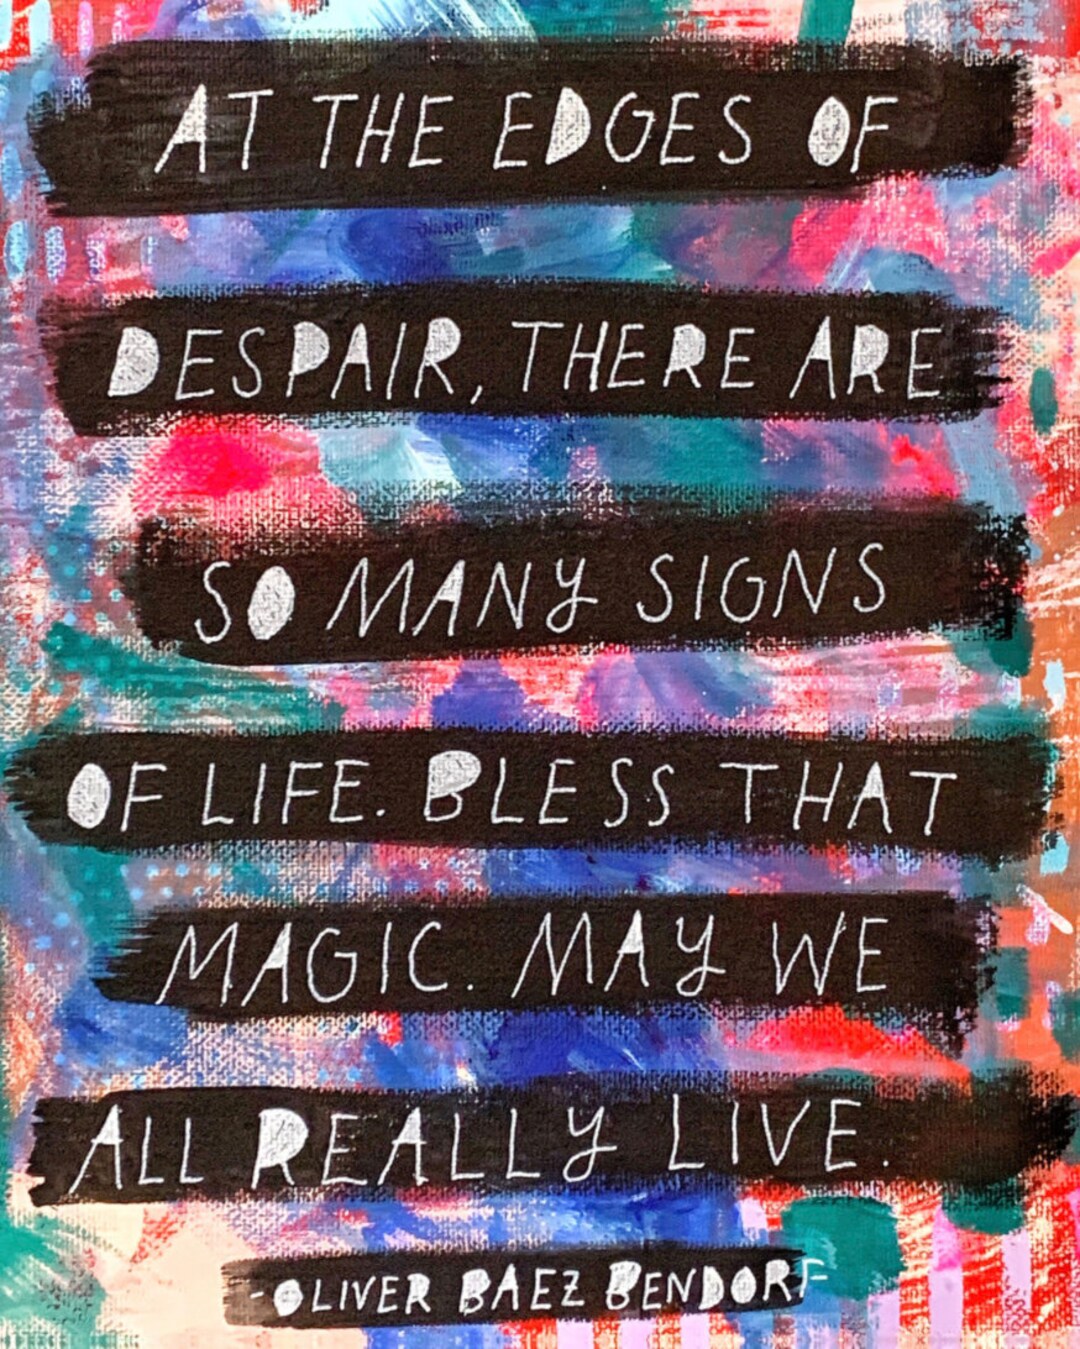 AT THE EDGES OF
DESPAIR, THERE ARE
SO MANY SIGNS
OF LIFE. BLESS THAT
MAGIC. MAY WE
ALL REALLY LIVE.
-OLIVER BAEZ BENDORF